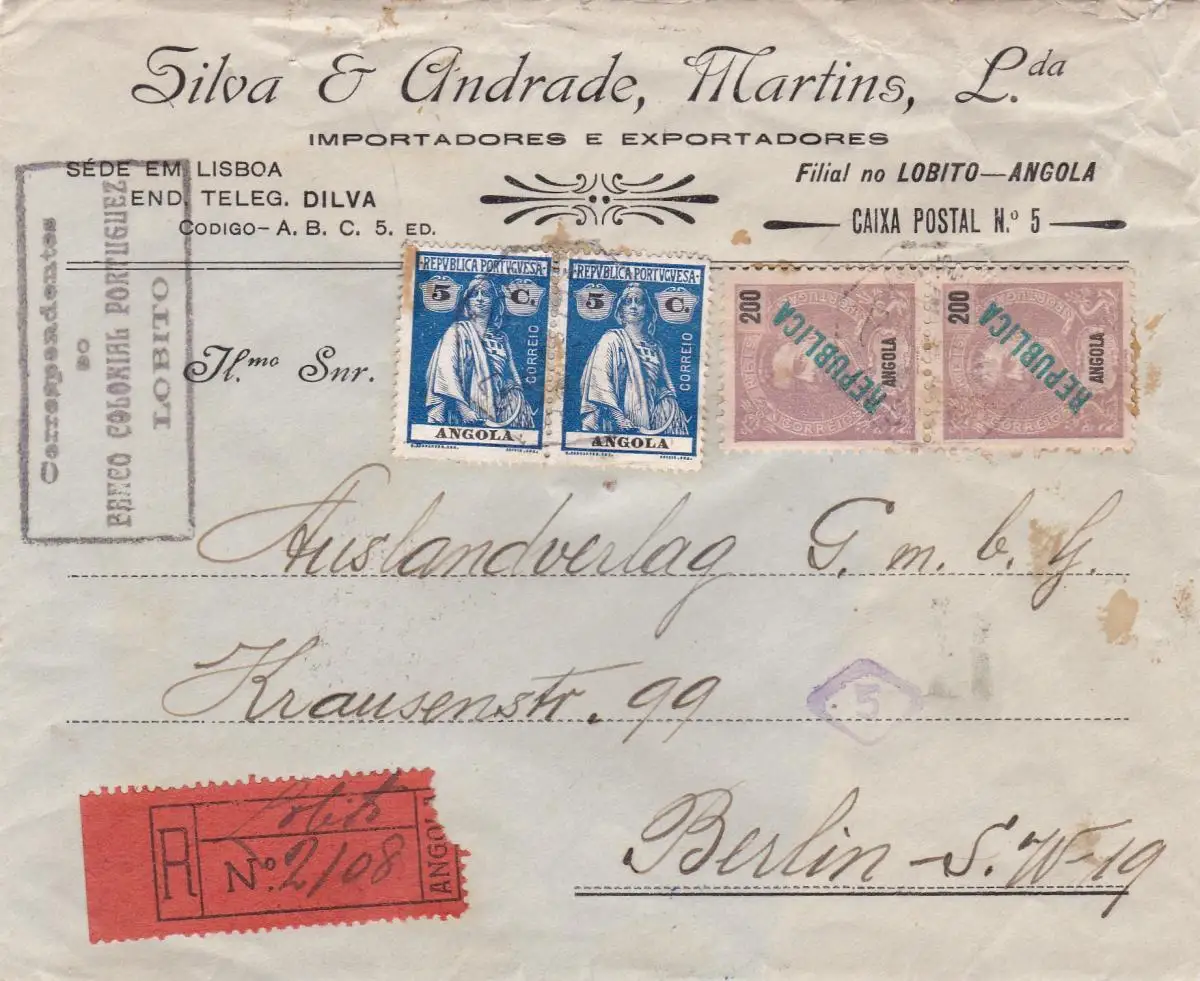 Silva & Andrade, Martins, L.da
IMPORTADORES E EXPORTADORES
SÉDE EM LISBOA
END. TELEG. DILVA
CODIGO - A. B. C. 5. ED.
Filial no LOBITO—ANGOLA
CAIXA POSTAL N.º 5
Correspondentes
do
BANCO COLONIAL PORTUGUEZ
LOBITO
REPVBLICA PORTVGVESA
5 C.
CORREIO
ANGOLA
REPVBLICA PORTVGVESA
5 C.
CORREIO
ANGOLA
200
REPUBLICA
ANGOLA
CORREIO
200
REPUBLICA
ANGOLA
CORREIO
Il.mo Snr.
Auslandverlag G. m. b. H.
Krausenstr. 99
5
Berlin - S. W-19
R
Lobito
Nº. 2108
ANGOLA